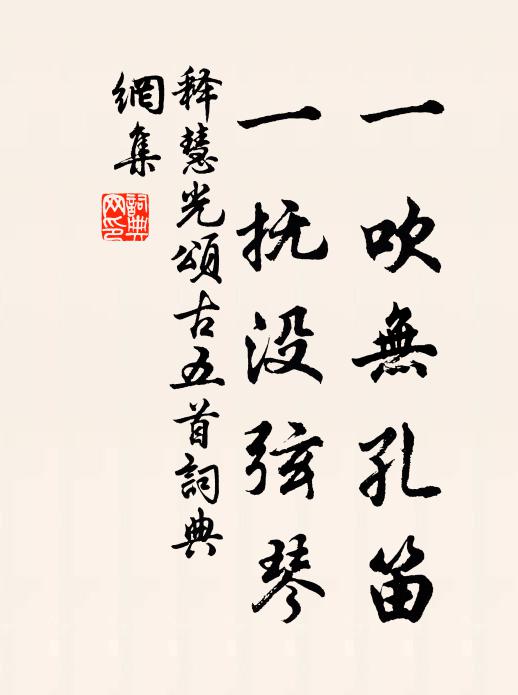 一吹無孔笛
一抚没弦琴
释慧光頌古五首詞典
網集
詞典
网印